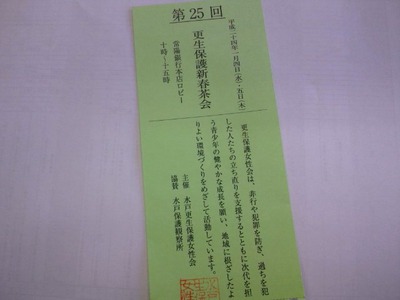 第25回
平成二十四年一月四日(水)・五日(木)
更生保護新春茶会
常陽銀行本店ロビー
十時~十五時
更生保護女性会は、非行や犯罪を防ぎ、過ちを犯
した人たちの立ち直りを支援するとともに次代を担
う青少年の健やかな成長を願い、地域に根ざしたよ
りよい環境づくりをめざして活動しています。
主催 水戸更生保護女性会
協賛 水戸保護観察所